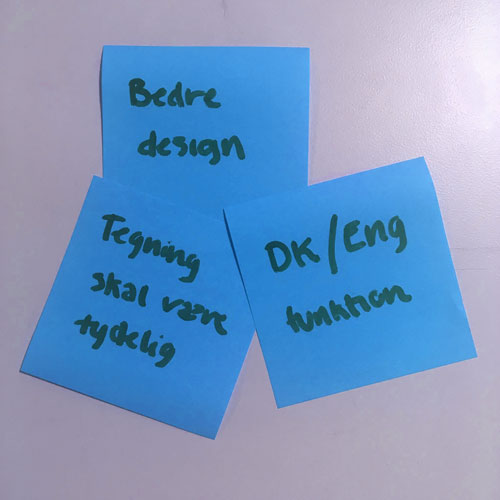 Bedre
design
Tegning
skal være
tydelig
DK/Eng
funktion